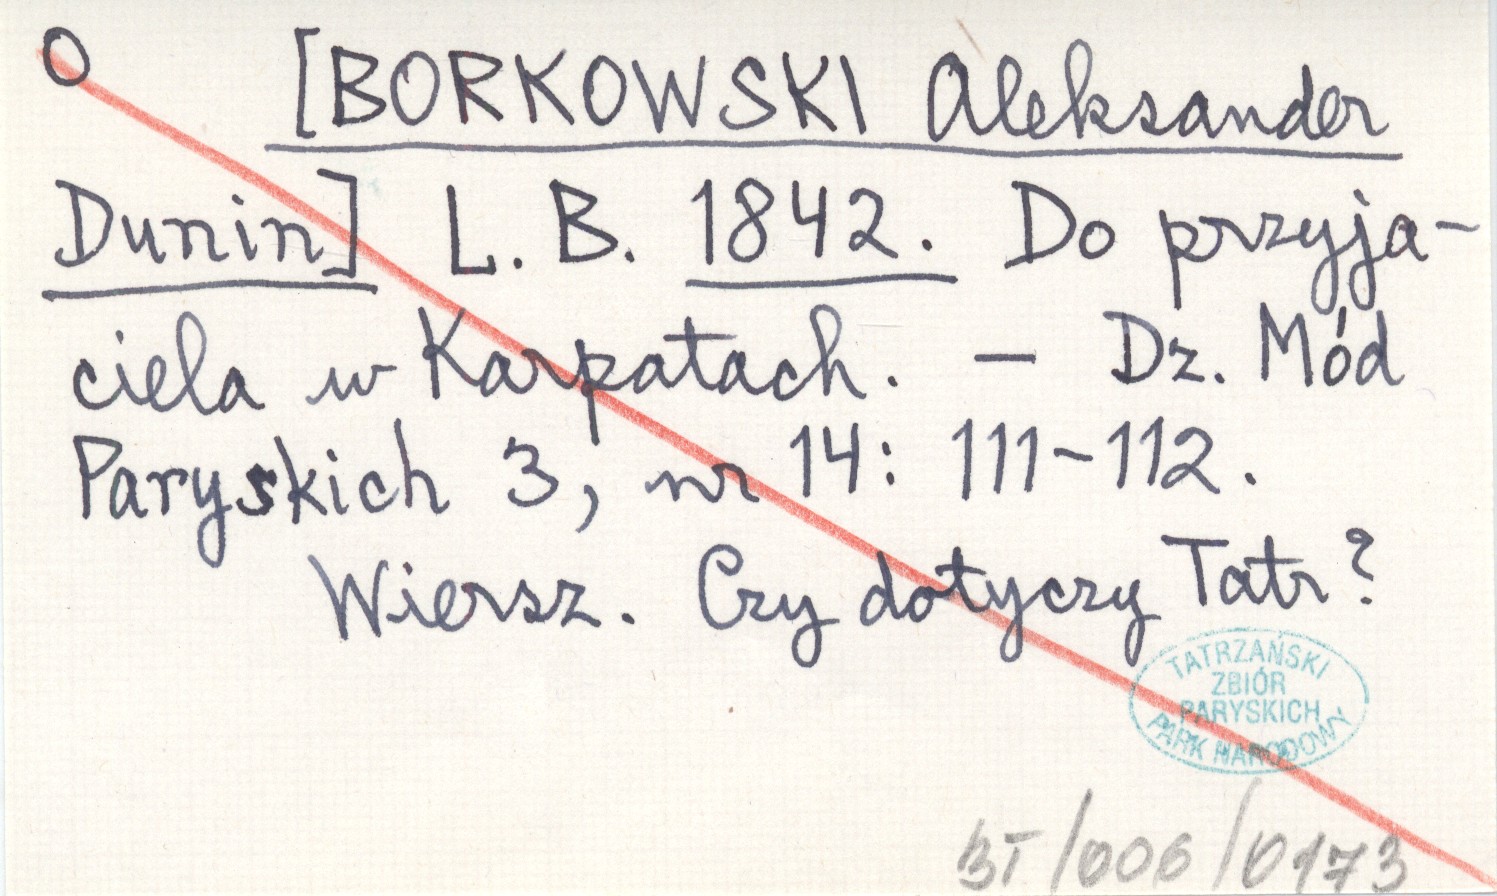 O [BORKOWSKI Aleksander
Dunin] L. B. 1842. Do przyja-
ciela w Karpatach. — Dz. Mód
Paryskich 3, nr 14: 111-112.
Wiersz. Czy dotyczy Tatr?
TATRZAŃSKI
ZBIÓR
PARYSKICH
PARK NARODOWY
BT/006/0173